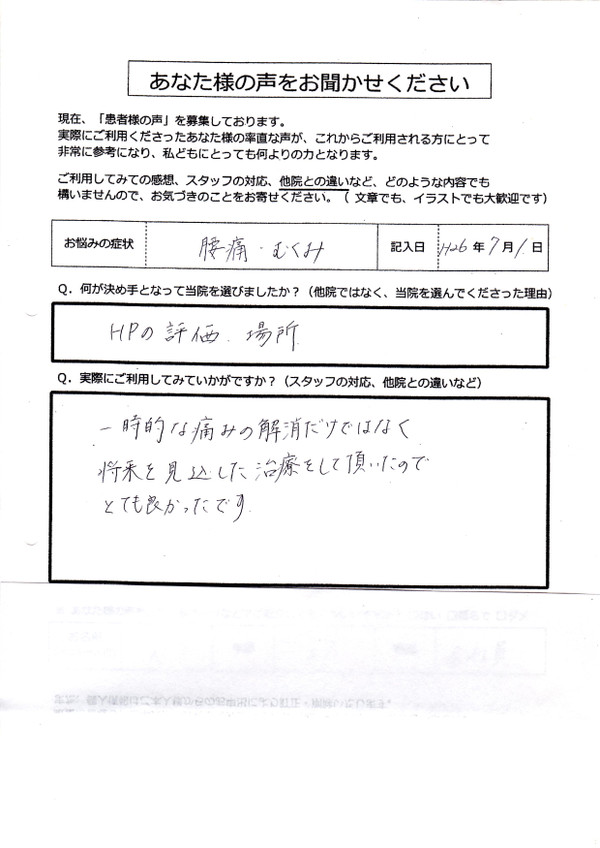 あなた様の声をお聞かせください
現在、「患者様の声」を募集しております。
実際にご利用くださったあなた様の率直な声が、これからご利用される方にとって
非常に参考になり、私どもにとっても何よりの力となります。
ご利用してみての感想、スタッフの対応、他院との違いなど、どのような内容でも
構いませんので、お気づきのことをお寄せください。（ 文章でも、イラストでも大歓迎です）
お悩みの症状 腰痛・むくみ 記入日 H26年7月1日
Q．何が決め手となって当院を選びましたか？（他院ではなく、当院を選んでくださった理由）
HPの評価、場所
Q．実際にご利用してみていかがですか？（スタッフの対応、他院との違いなど）
一時的な痛みの解消だけではなく
将来を見込した治療をして頂いたので
とても良かったです